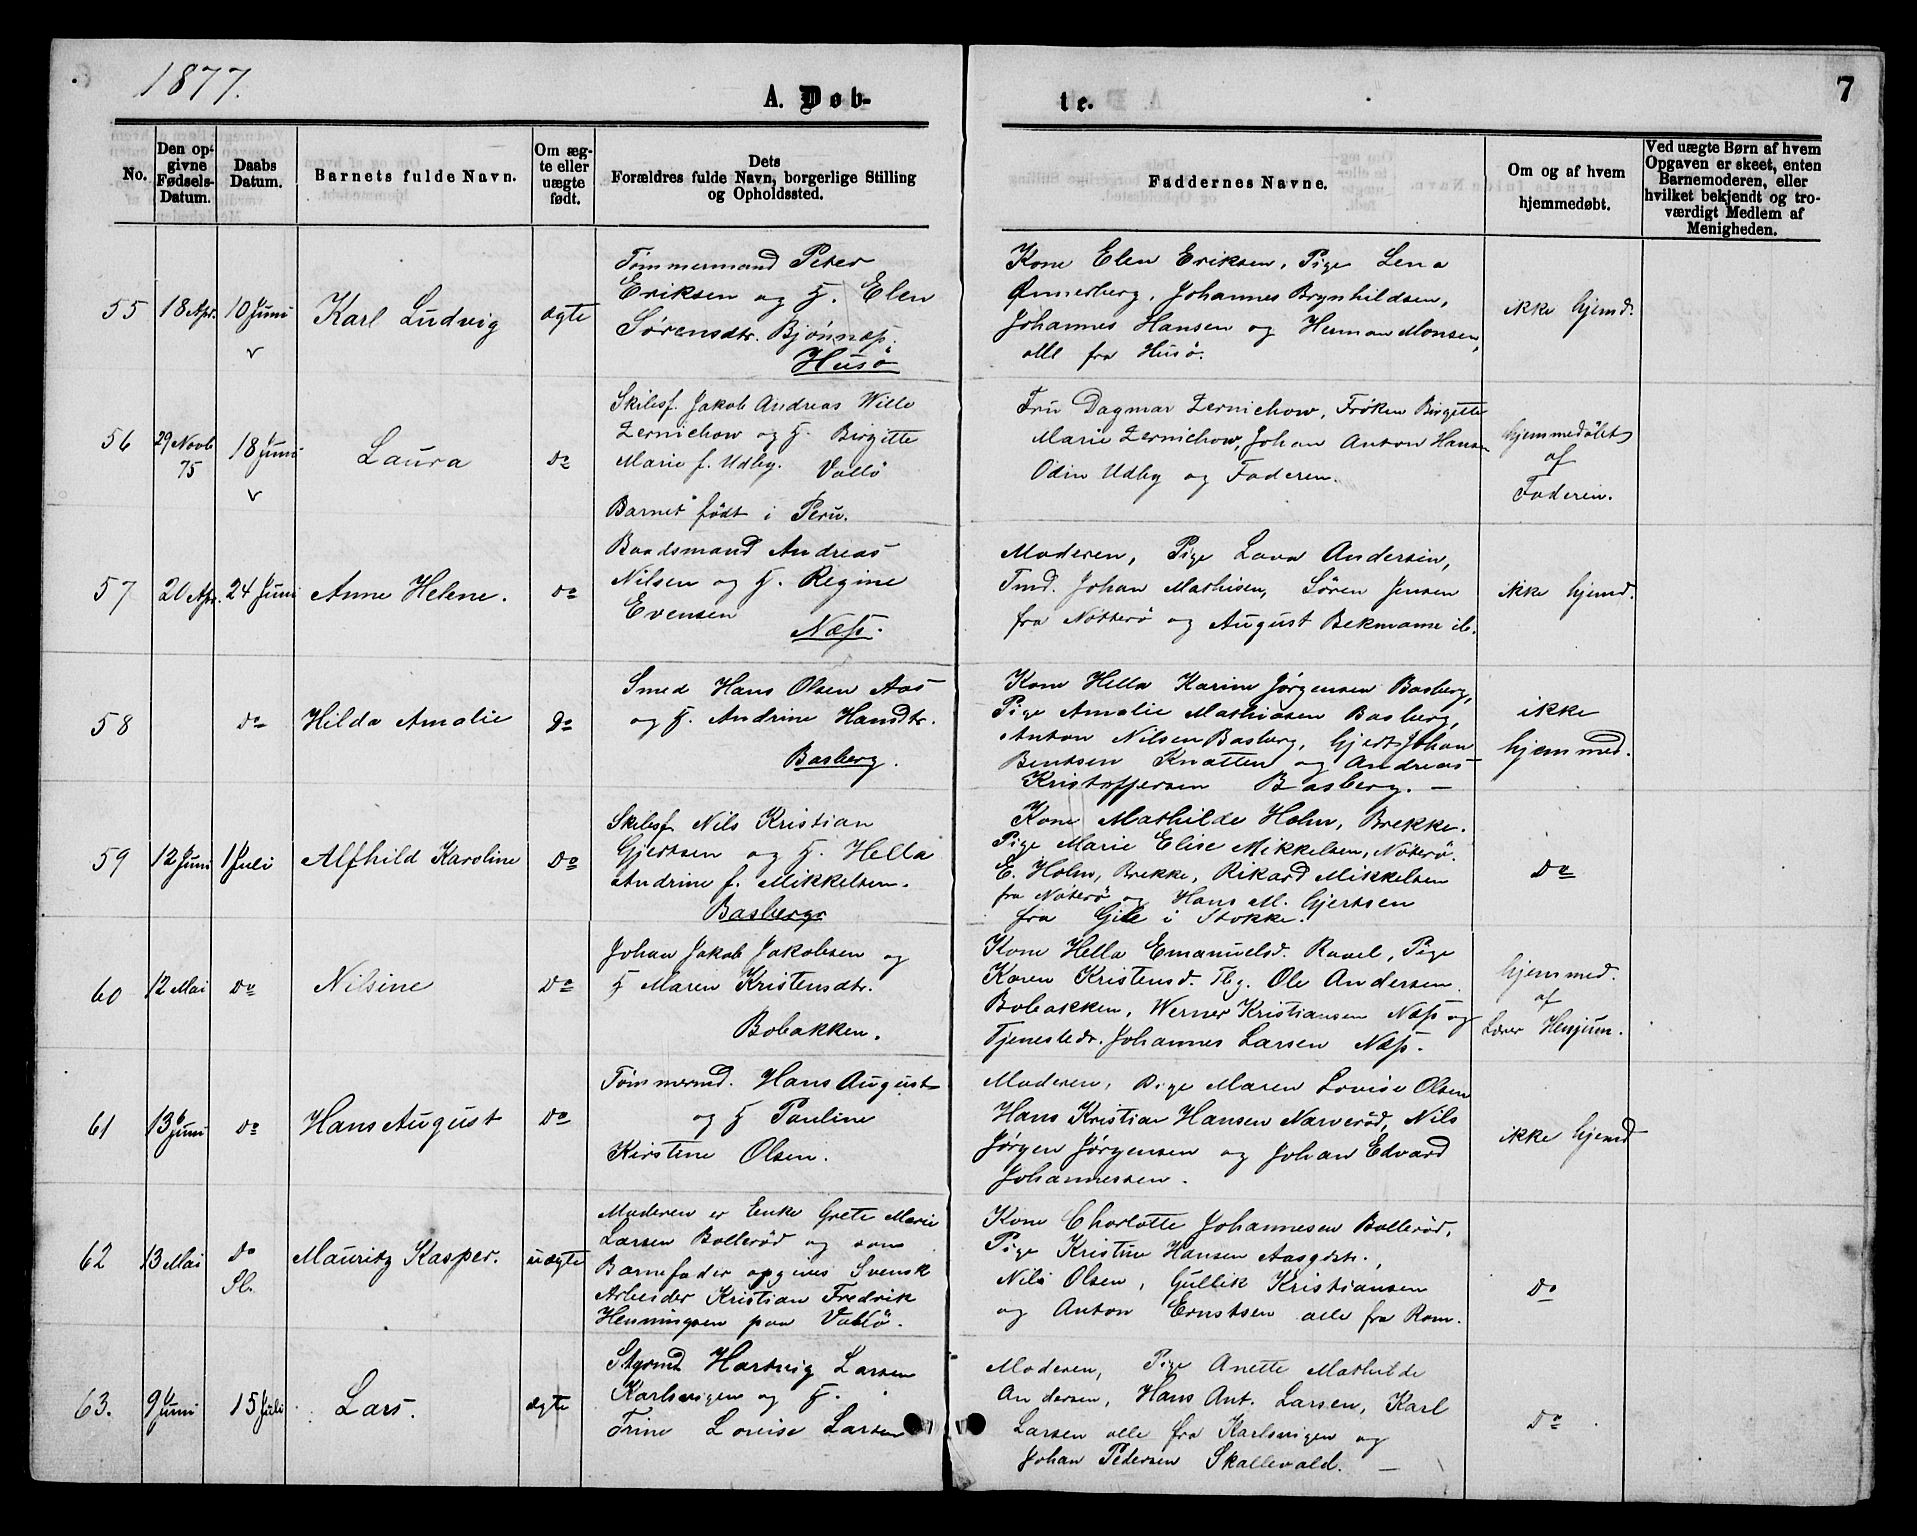 1877.
A. Døb-
te.
7
No.
Den op-
givne
Fødsels-
Datum.
Daabs
Datum.
Barnets fulde Navn.
Om æg-
te eller
uægte
født.
Dets
Forældres fulde Navn, borgerlige Stilling
og Opholdssted.
Faddernes Navne.
Om og af hvem
hjemmedøbt.
Ved uægte Børn af hvem
Opgaven er skeet, enten
Barnemoderen, eller
hvilket bekjendt og tro-
værdigt Medlem af
Menigheden.
55
18 Apr.
10 Juni
Karl Ludvig
ægte
Tømmermand Peter
Eriksen og H. Elen
Sørensdtr. Bjønnes
Husö
Kone Elen Eriksen, Pige Lena
Ønnerberg, Johannes Brynhildsen,
Johannes Hansen og Herman Monsen,
alle fra Husö.
ikke hjemd.
56
29 Novb
75
18 Juni
Laura
do
Skibsf. Jakob Andreas Wille
Zernichow og H. Birgitte
Marie f. Udby. Vallö
Barnet födt i Peru.
Fru Dagmar Zernichow, Frøken Birgitte
Marie Zernichow, Johan Anton Hansen
Odin Udby og Faderen.
hjemmedøbt
af
Faderen.
57
24 Juni
Anne Helene.
do
Baadsmand Andreas
Nilsen og H. Regine
Evensen
Næss.
Moderen, Pige Lava Andersen,
Tmd. Johan Mathisen, Sören Jensen
fra Nötterö og August Bekmann ib.
ikke hjemd.
58
do
Hilda Amalie
do
Smed Hans Olsen Aas
og H. Andrine Hansdtr.
Basberg.
Kone Hella Karine Jørgensen Basberg,
Pige Amalie Mathiasen Basberg,
Anton Nilsen Basberg, Gjert Johan
Bentsen Knatten og Andreas
Kristoffersen Basberg. —
ikke
hjemmed.
59
12 Juni
1 Juli
Alfhild Karoline
do
Skibsf. Nils Kristian
Gjertsen og H. Hella
Andrine f. Mikkelsen.
Basberg
Kone Mathilde Holm, Brekke.
Pige Marie Elise Mikkelsen, Nöterö.
E. Holm, Brekke, Rikard Mikkelsen
fra Nöterö og Hans M. Gjertsen
fra Gile i Stokke.
do
60
12 Mai
do
Nilsine
do
Johan Jakob Jakobsen og
H Maren Kristensdtr.
Bobakken.
Kone Hella Emanuelsd. Ravel, Pige
Karen Kristensd. Tbg. Ole Andersen
Bobakken, Werner Kristiansen Næss og
Tjenestedr. Johannes Larsen Næss.
hjemmed.
af
Lærer Henjum.
61
13 Juni
do
Hans August
do
Tömmermd. Hans August
og H Pauline
Kirstine Olsen.
Moderen, Pige Maren Lovise Olsen
Hans Kristian Hansen Narverød, Nils
Jørgen Jørgensen og Johan Edvard
Johannessen.
ikke hjemd
62
13 Mai
do
Sl.
Mauritz Kasper.
uægte
Moderen er Enke Grete Marie
Larsen Bollerød og som
Barnefader opgives Svensk
Arbeider Kristian Fredrik
Henningsen paa Vallö.
Kone Charlotte Johannesen Bollerød,
Pige Kristine Hansen Aasgdstr.,
Nils Olsen, Gullik Kristiansen
og Anton Ernstsen alle fra Rom.
do
63.
9 Juni
15 Juli
Lars.
ægte
Styrmd Hartvig Larsen
Karlsvigen og H.
Trine Lovise Larsen
Moderen, Pige Anette Mathilde
Andersen, Hans Ant. Larsen, Karl
Larsen alle fra Karlsvigen og
Johan Pedersen Skallevald. —
do